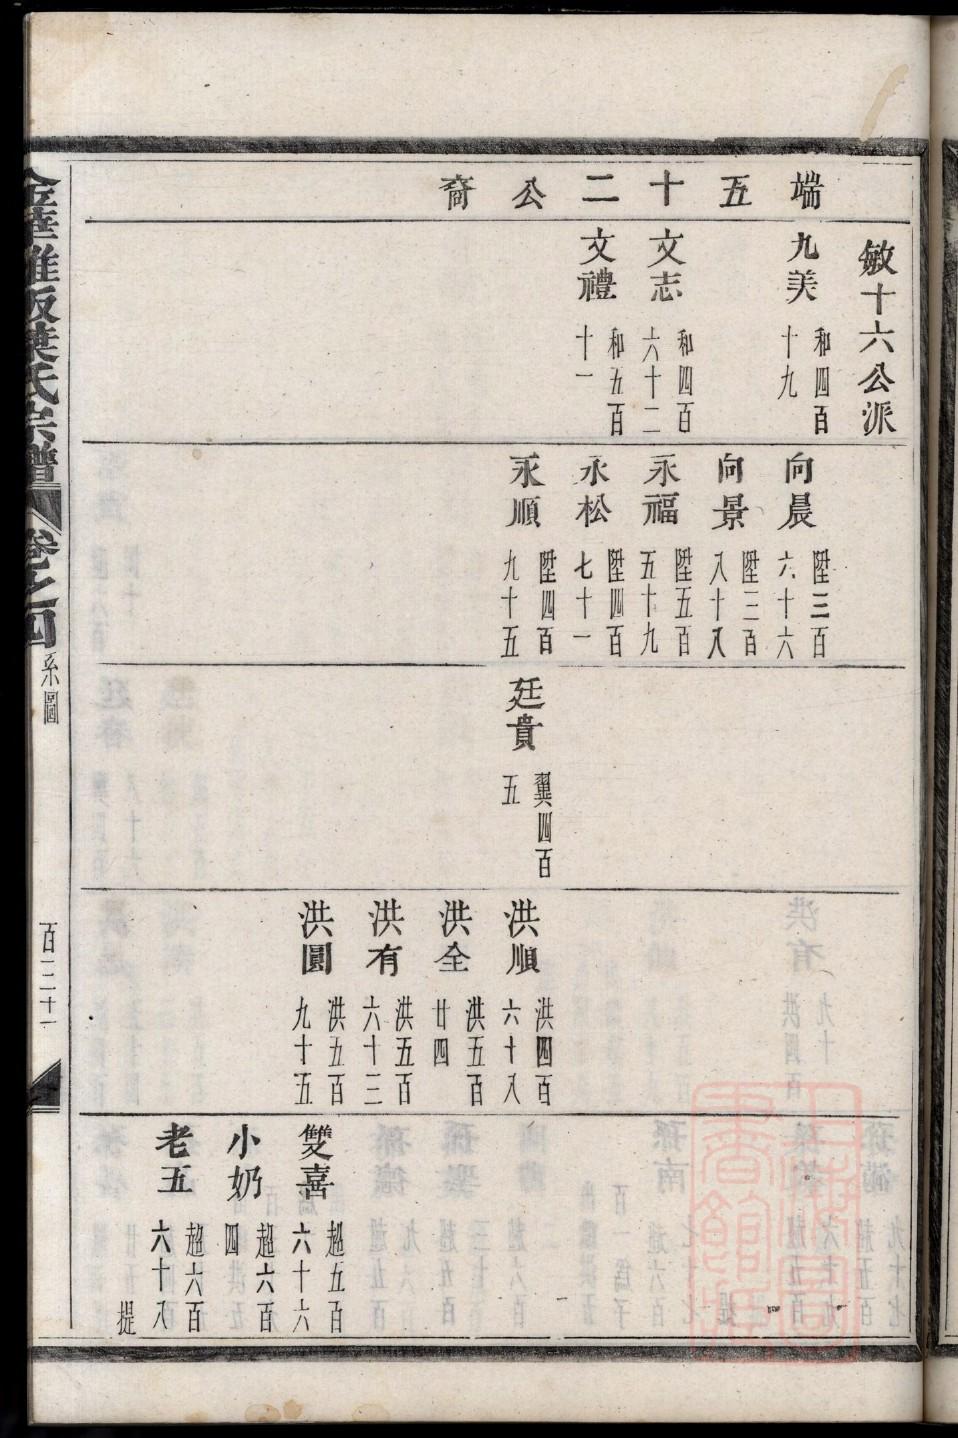 端五十二公裔
敏十六公派
九美 和四百十九
文志 和四百六十二
文禮 和五百十一
向晨 陞三百六十六
向景 陞三百八十八
永福 陞五百五十九
永松 陞四百七十一
永順 陞四百九十五
廷貴 翼四百五
洪順 洪四百六十八
洪全 洪五百廿四
洪有 洪五百六十三
洪圓 洪五百九十五
雙喜 超五百六十六
小奶 超六百四
老五 超六百六十八
提
葉氏宗譜
卷之四
系圖
百二十一